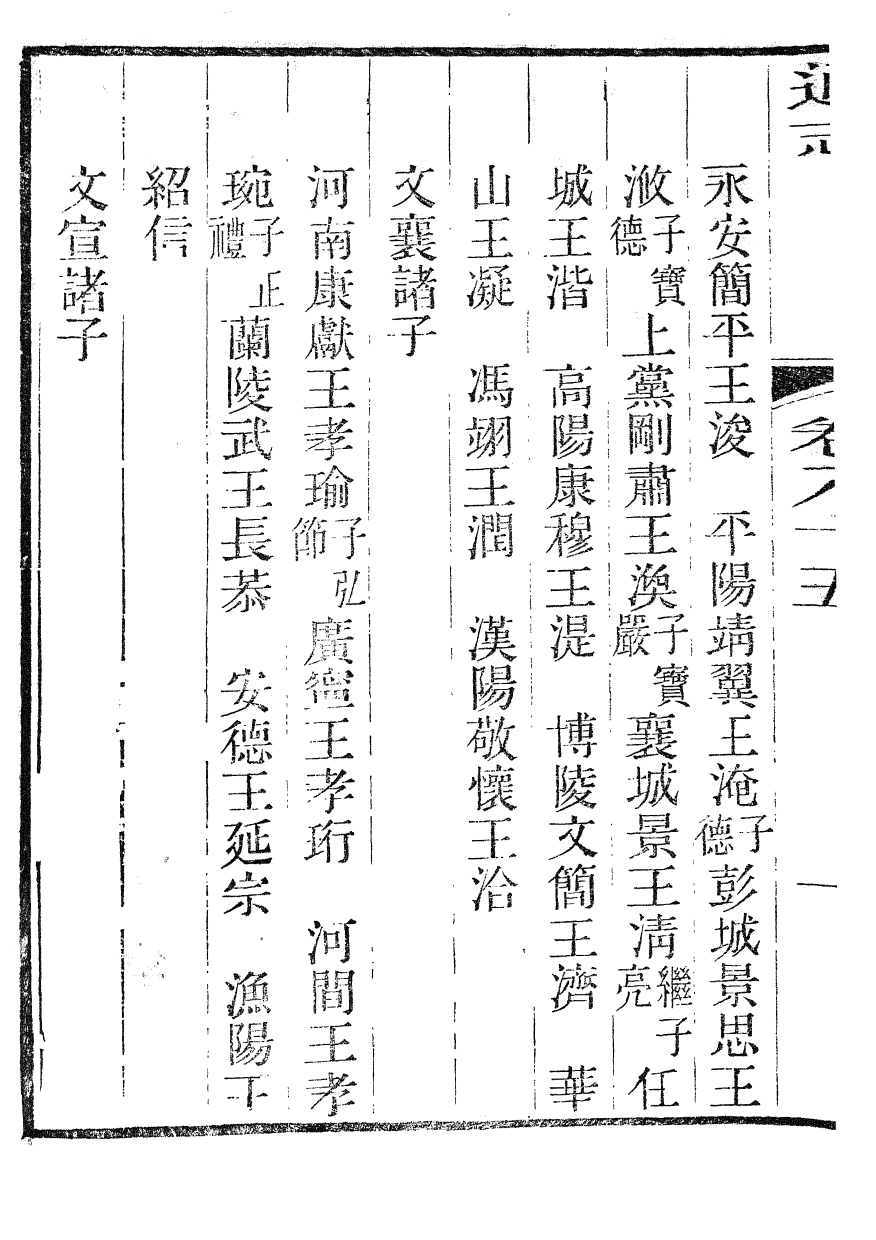 通志 卷八十五 一
永安簡平王浚 平陽靖翼王淹子德彭城景思王
浟子寶德上黨剛肅王渙子寶嚴襄城景王淸繼子亮任
城王湝 高陽康穆王湜 博陵文簡王濟 華
山王凝 馮翊王潤 漢陽敬懷王洽
文襄諸子
河南康獻王孝瑜子弘節廣寧王孝珩 河間王孝
琬子正禮蘭陵武王長恭 安德王延宗 漁陽王
紹信
文宣諸子